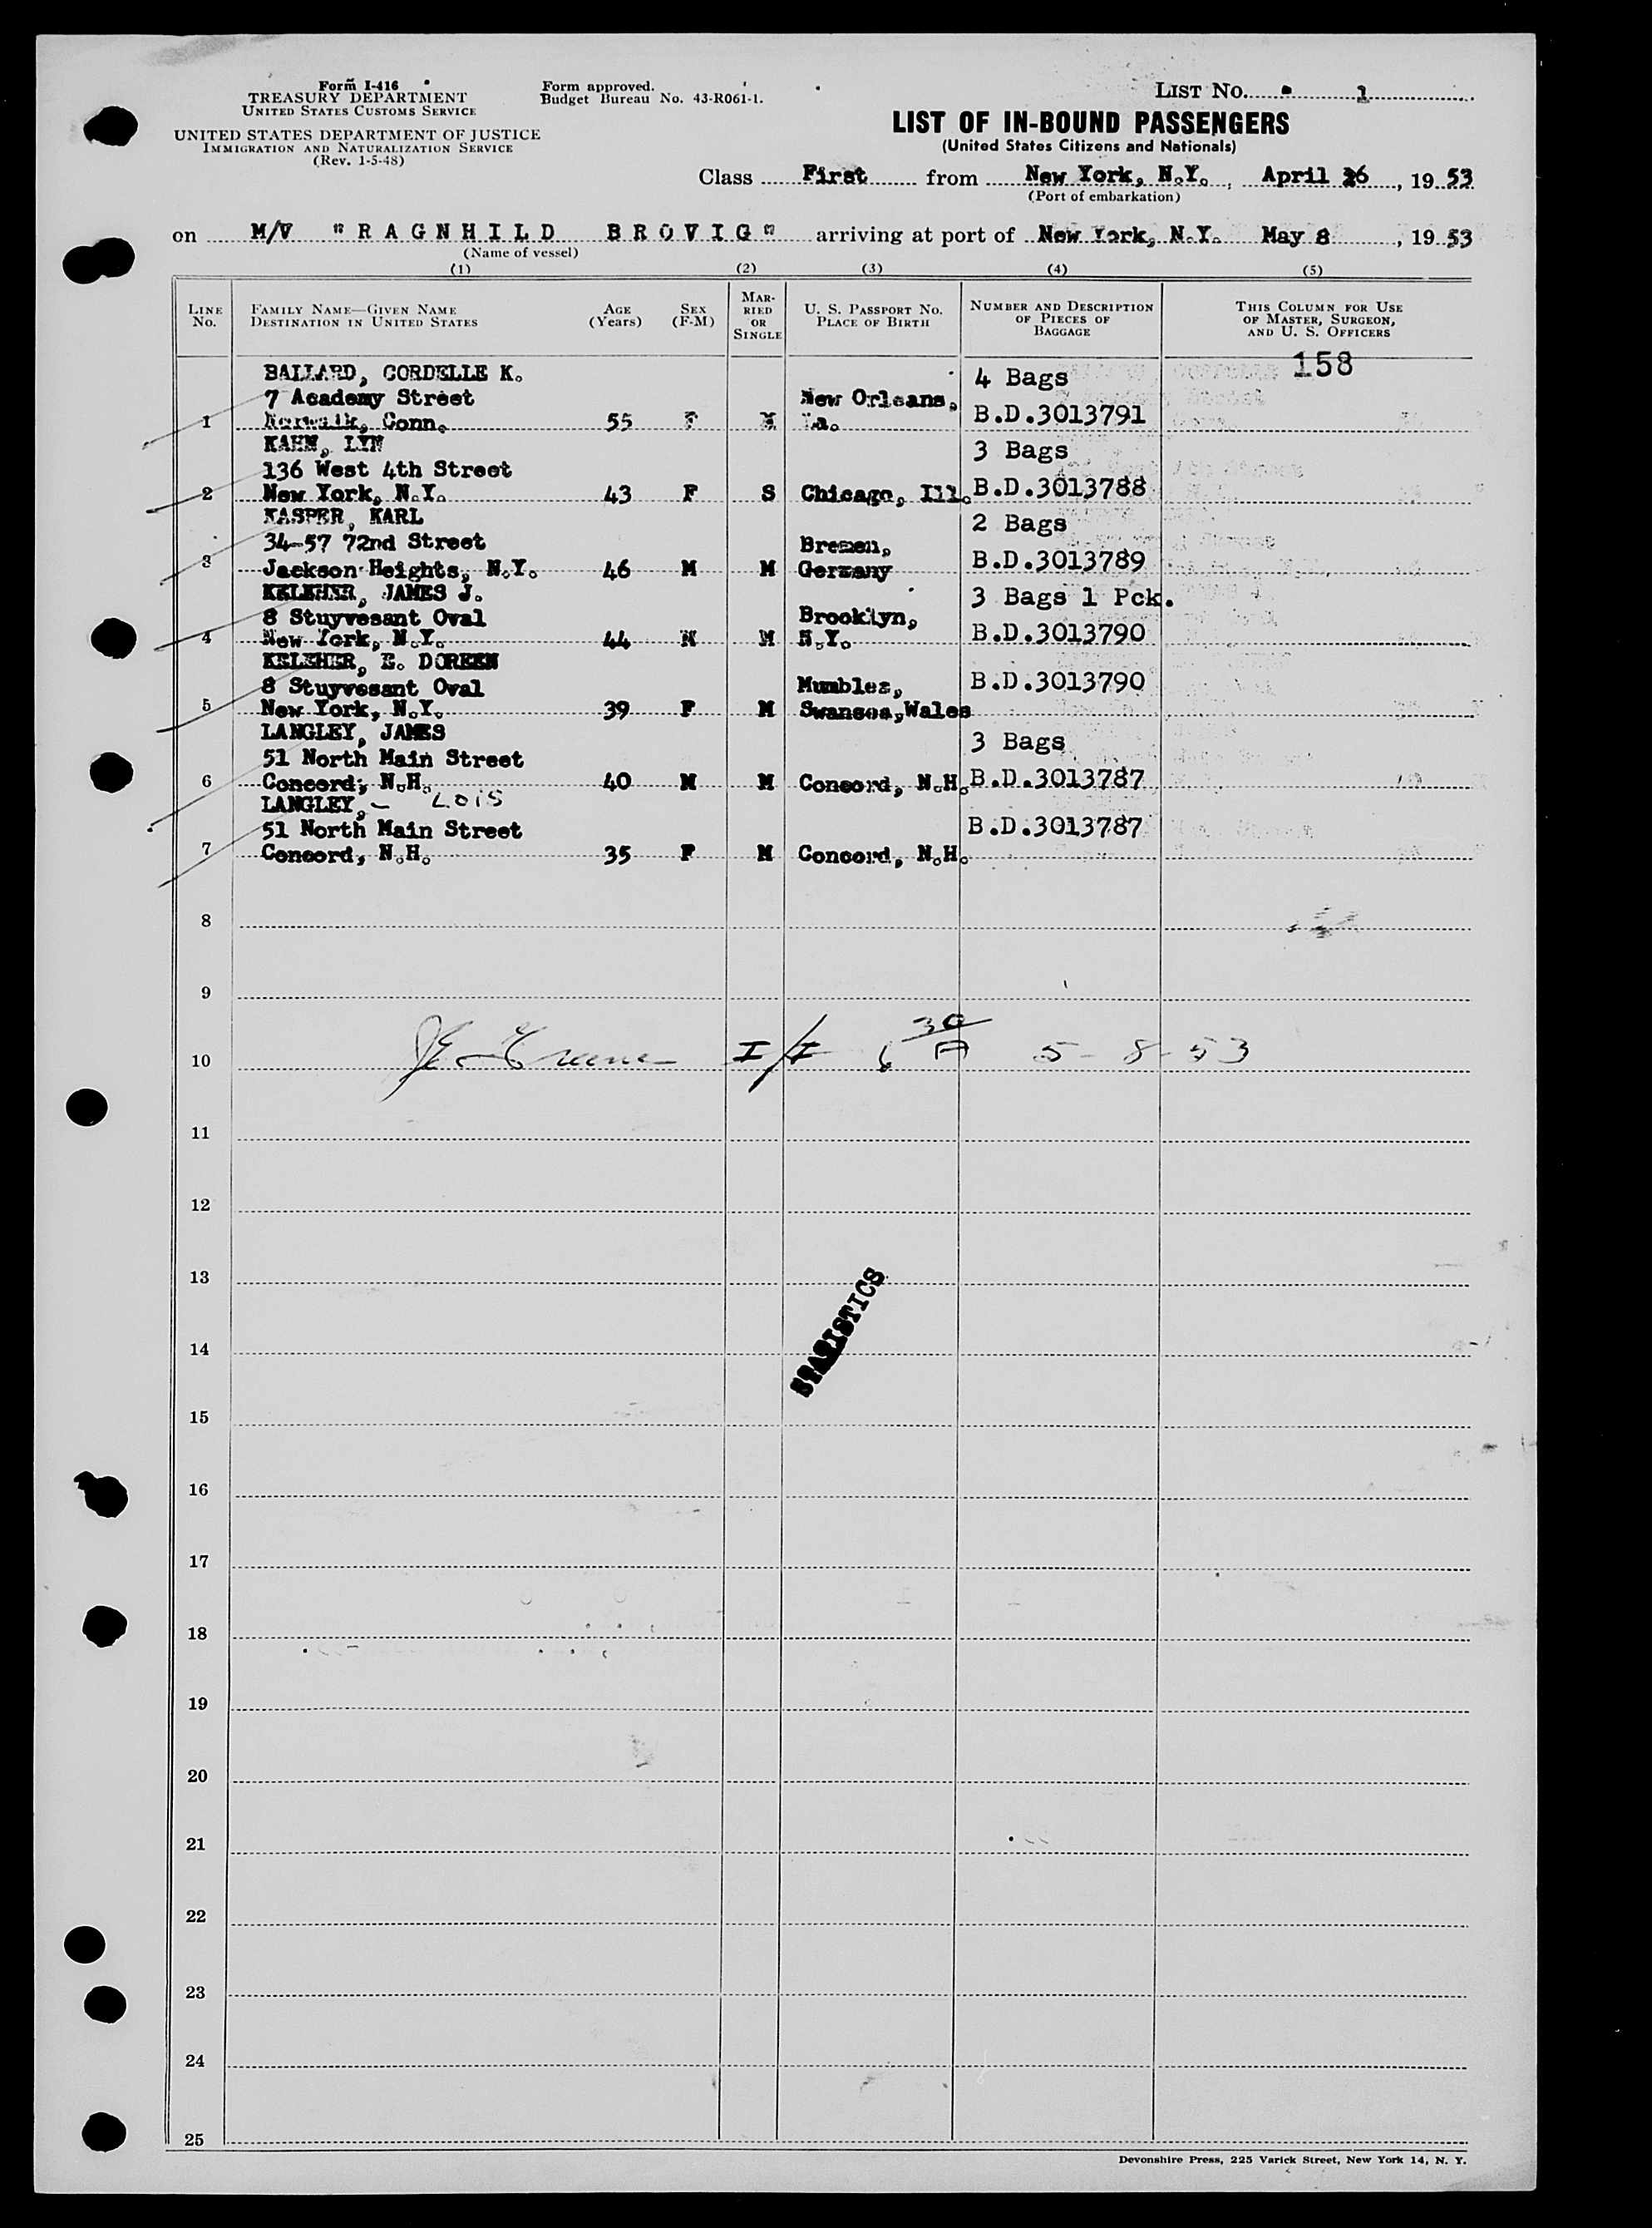 Form I-416
TREASURY DEPARTMENT
UNITED STATES CUSTOMS SERVICE
UNITED STATES DEPARTMENT OF JUSTICE
IMMIGRATION AND NATURALIZATION SERVICE
(Rev. 1-5-48)
Form approved.
Budget Bureau No. 43-R061-1.
LIST No. 1
LIST OF IN-BOUND PASSENGERS
(United States Citizens and Nationals)
Class First from New York, N.Y., April 26, 19 53
(Port of embarkation)
on M/V "RAGNHILD BROVIG" arriving at port of New York, N.Y. May 8, 19 53
(Name of vessel)
(1) (2) (3) (4) (5)
LINE No.
FAMILY NAME—GIVEN NAME
DESTINATION IN UNITED STATES
AGE (Years)
SEX (F-M)
MARRIED OR SINGLE
U. S. PASSPORT No.
PLACE OF BIRTH
NUMBER AND DESCRIPTION OF PIECES OF BAGGAGE
THIS COLUMN FOR USE OF MASTER, SURGEON, AND U. S. OFFICERS
158
BALLARD, CORDELLE K. 4 Bags
7 Academy Street New Orleans,
1 Norwalk, Conn. 55 F M La. B.D.3013791
KAHN, LYN 3 Bags
136 West 4th Street
2 New York, N.Y. 43 F S Chicago, Ill. B.D.3013788
KASPER, KARL 2 Bags
34-57 72nd Street Bremen,
3 Jackson Heights, N.Y. 46 M M Germany B.D.3013789
KELEHER, JAMES J. 3 Bags 1 Pck.
8 Stuyvesant Oval Brooklyn,
4 New York, N.Y. 44 M M N.Y. B.D.3013790
KELEHER, E. DOREEN
8 Stuyvesant Oval Mumbles, B.D.3013790
5 New York, N.Y. 39 F M Swansea,Wales
LANGLEY, JAMES 3 Bags
51 North Main Street
6 Concord, N.H. 40 M M Concord, N.H. B.D.3013787
LANGLEY, - LOIS
51 North Main Street B.D.3013787
7 Concord, N.H. 35 F M Concord, N.H.
8
9
10 I/I 6 30 A 5-8-53
11
12
13
STATISTICS
14
15
16
17
18
19
20
21
22
23
24
25
Devonshire Press, 225 Varick Street, New York 14, N. Y.